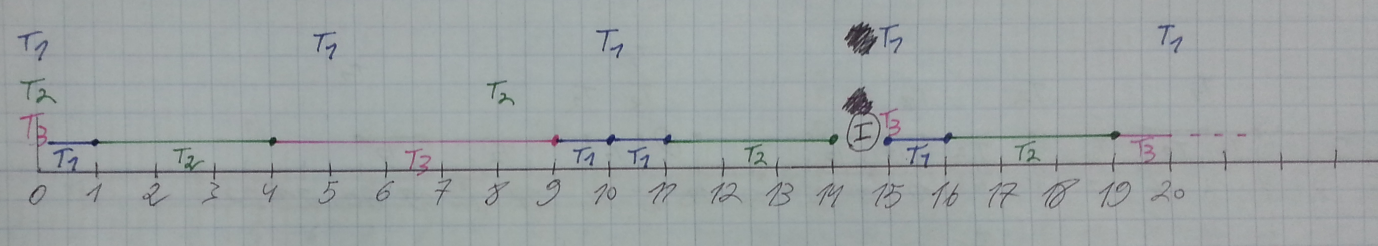 T1 T1 T1 T1 T1
T2 T2
T3 T3
I
T1 T2 T3 T1 T1 T2 T1 T2 T3
0 1 2 3 4 5 6 7 8 9 10 11 12 13 14 15 16 17 18 19 20